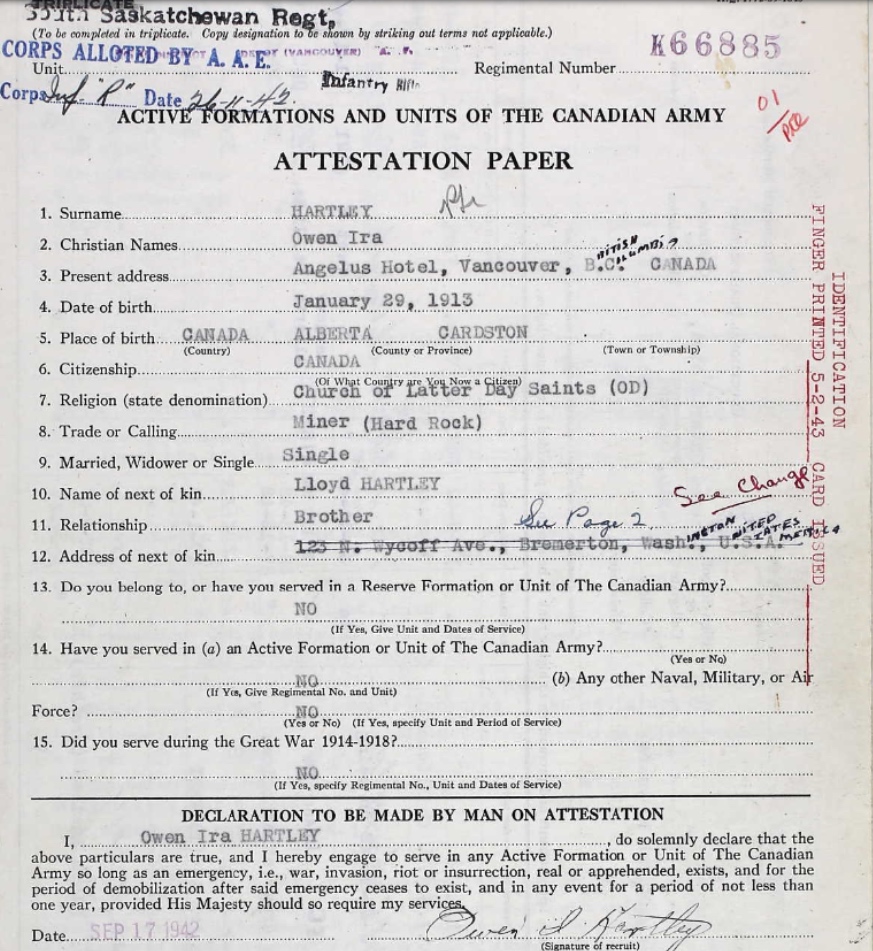 TRIPLICATE
South Saskatchewan Regt,
(To be completed in triplicate. Copy designation to be shown by striking out terms not applicable.)
CORPS ALLOTED BY A. A. E. (VANCOUVER) "A. F."
Unit Infantry Rifle Regimental Number K66885
Corps Inf. "R" Date 26-11-42.
01
ACTIVE FORMATIONS AND UNITS OF THE CANADIAN ARMY
ATTESTATION PAPER
1. Surname HARTLEY
2. Christian Names Owen Ira
BRITISH COLUMBIA
3. Present address Angelus Hotel, Vancouver, B.C. CANADA
4. Date of birth January 29, 1913
5. Place of birth CANADA ALBERTA CARDSTON
(Country) (County or Province) (Town or Township)
6. Citizenship CANADA
(Of What Country are You Now a Citizen)
7. Religion (state denomination) Church of Latter Day Saints (OD)
8. Trade or Calling Miner (Hard Rock)
9. Married, Widower or Single Single
10. Name of next of kin Lloyd HARTLEY See Change
11. Relationship Brother See Page 2
INGTON UNITED STATES AMERICA
12. Address of next of kin 123 N. Wycoff Ave., Bremerton, Wash., U.S.A.
13. Do you belong to, or have you served in a Reserve Formation or Unit of The Canadian Army?
NO
(If Yes, Give Unit and Dates of Service)
14. Have you served in (a) an Active Formation or Unit of The Canadian Army?
(Yes or No)
NO (b) Any other Naval, Military, or Air
(If Yes, Give Regimental No. and Unit)
Force? NO
(Yes or No) (If Yes, specify Unit and Period of Service)
15. Did you serve during the Great War 1914-1918?
NO
(If Yes, specify Regimental No., Unit and Dates of Service)
IDENTIFICATION
FINGER PRINTED 5-2-43 CARD ISSUED
DECLARATION TO BE MADE BY MAN ON ATTESTATION
I, Owen Ira HARTLEY, do solemnly declare that the
above particulars are true, and I hereby engage to serve in any Active Formation or Unit of The Canadian
Army so long as an emergency, i.e., war, invasion, riot or insurrection, real or apprehended, exists, and for the
period of demobilization after said emergency ceases to exist, and in any event for a period of not less than
one year, provided His Majesty should so require my services.
Date SEP 17 1942 Owen I Hartley
(Signature of recruit)